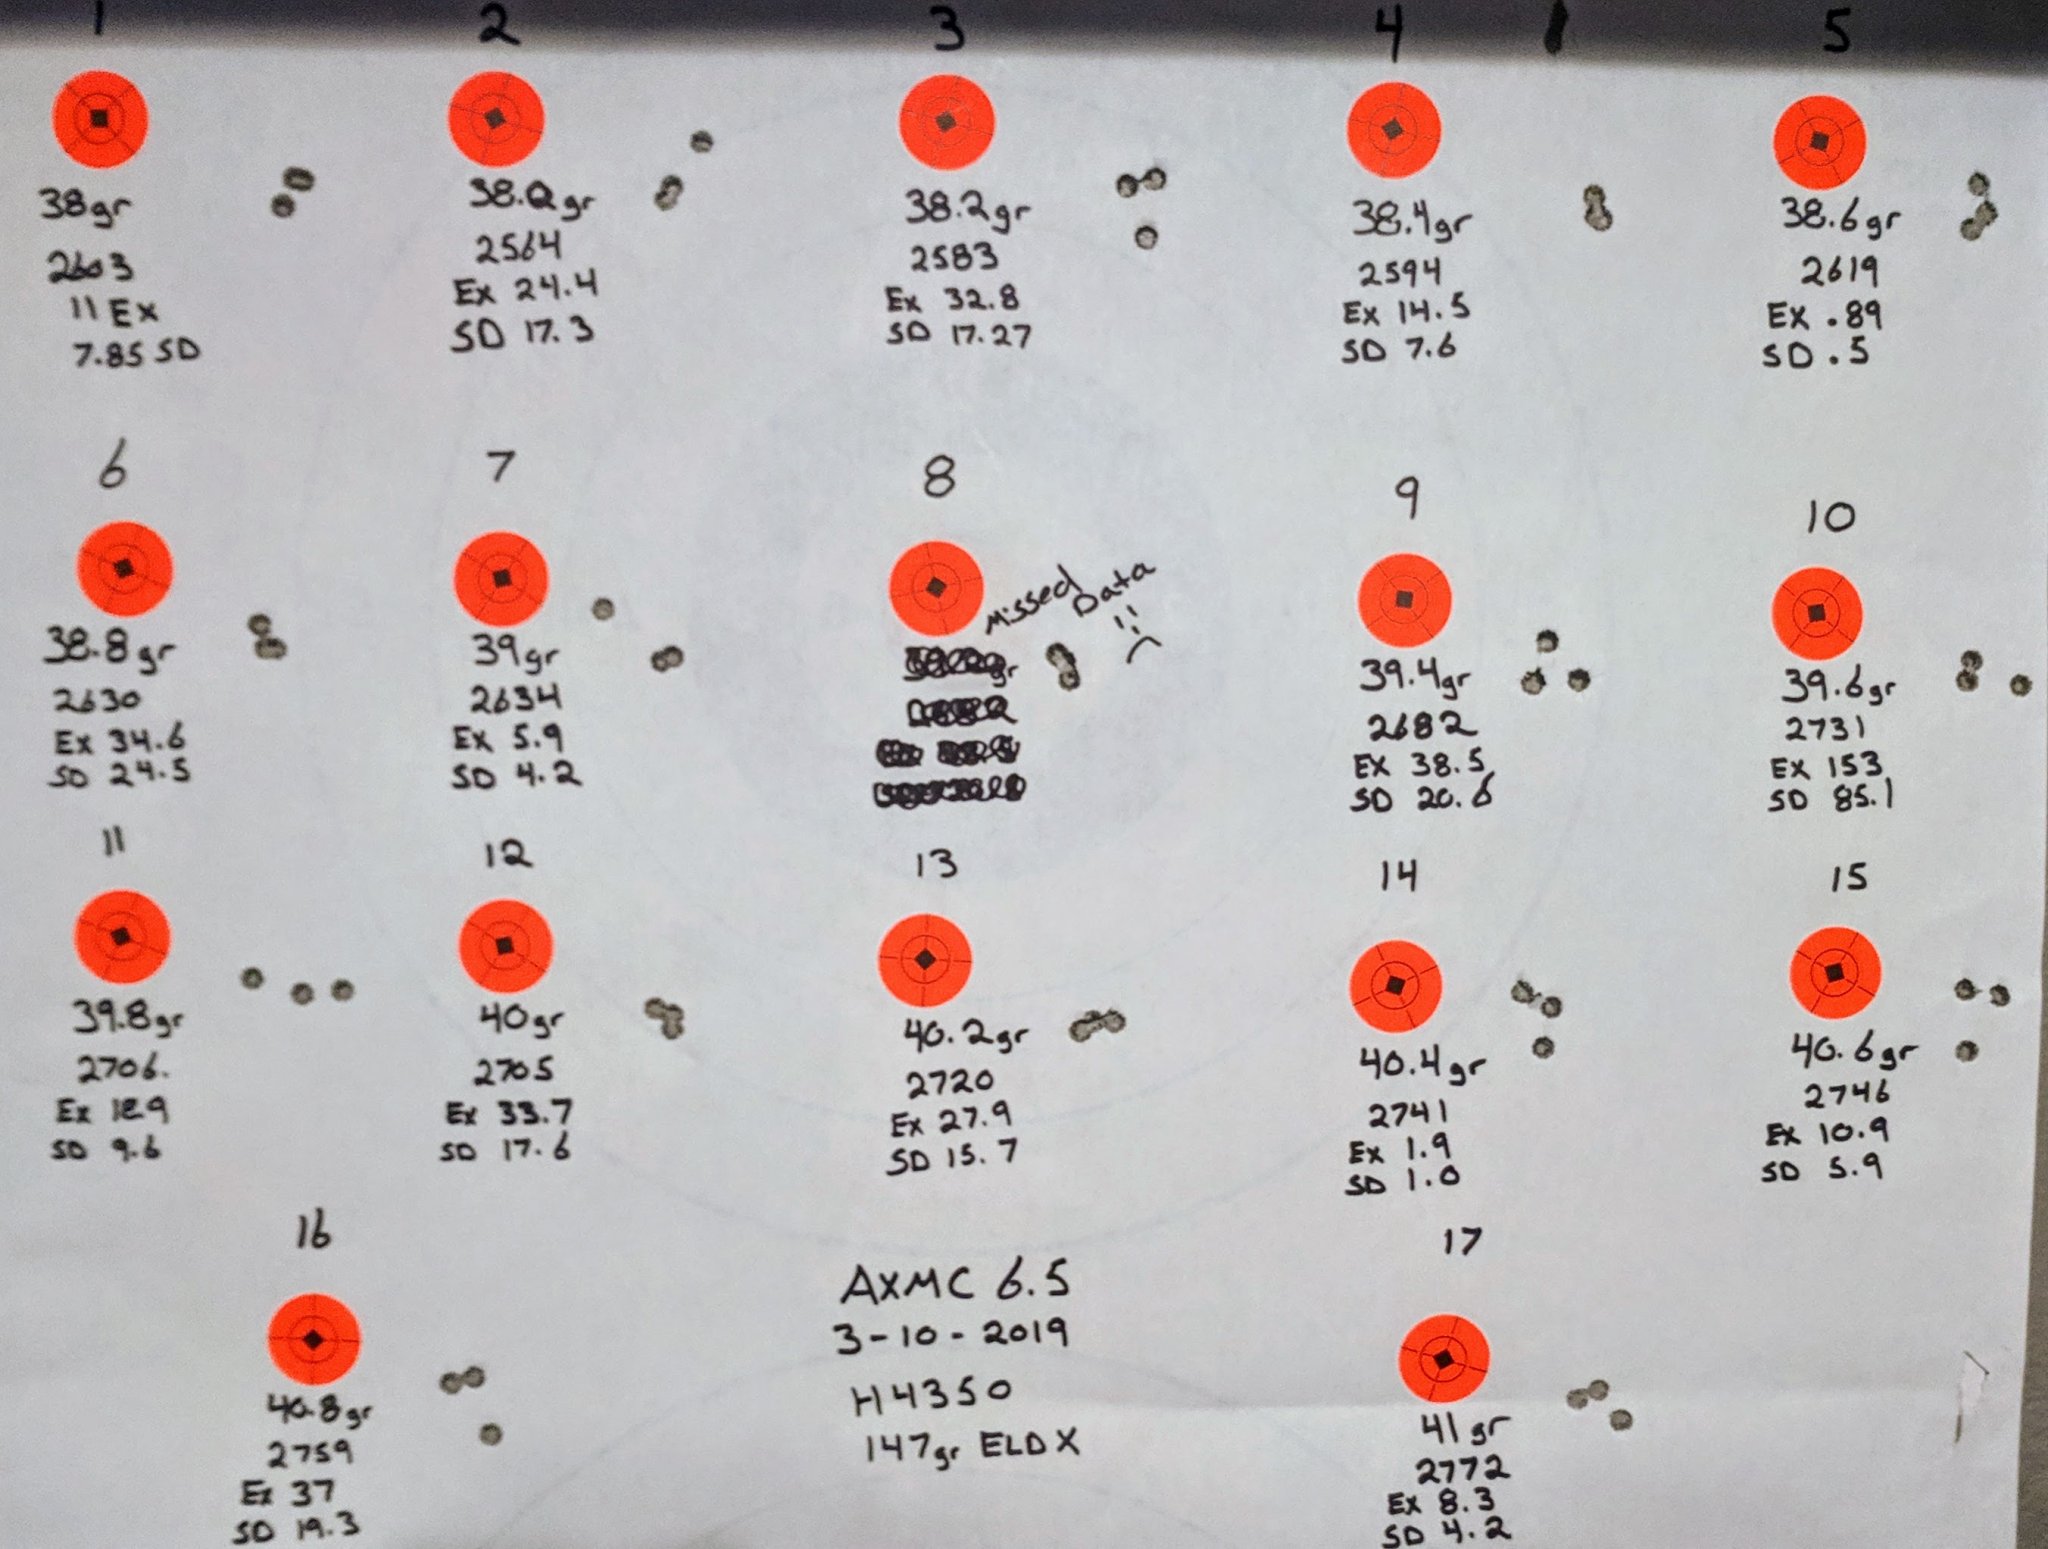 1
38gr
2603
11 Ex
7.85 SD
2
2564
Ex 24.4
SD 17.3
3
38.2gr
2583
Ex 32.8
SD 17.27
4
38.4gr
2594
Ex 14.5
SD 7.6
5
38.6gr
2619
Ex .89
SD .5
6
38.8gr
2630
Ex 34.6
SD 24.5
7
39gr
2634
Ex 5.9
SD 4.2
8
Missed Data
9
39.4gr
2682
Ex 38.5
SD 20.6
10
39.6gr
2731
Ex 153
SD 85.1
11
39.8gr
2706.
Ex
SD 9.6
12
40gr
2705
Ex 33.7
SD 17.6
13
40.2gr
2720
Ex 27.9
SD 15.7
14
40.4gr
2741
Ex 1.9
SD 1.0
15
40.6gr
2746
Ex 10.9
SD 5.9
16
40.8gr
2759
Ex 37
SD 19.3
AXMC 6.5
3-10-2019
H4350
147gr ELD X
17
41gr
2772
Ex 8.3
SD 4.2